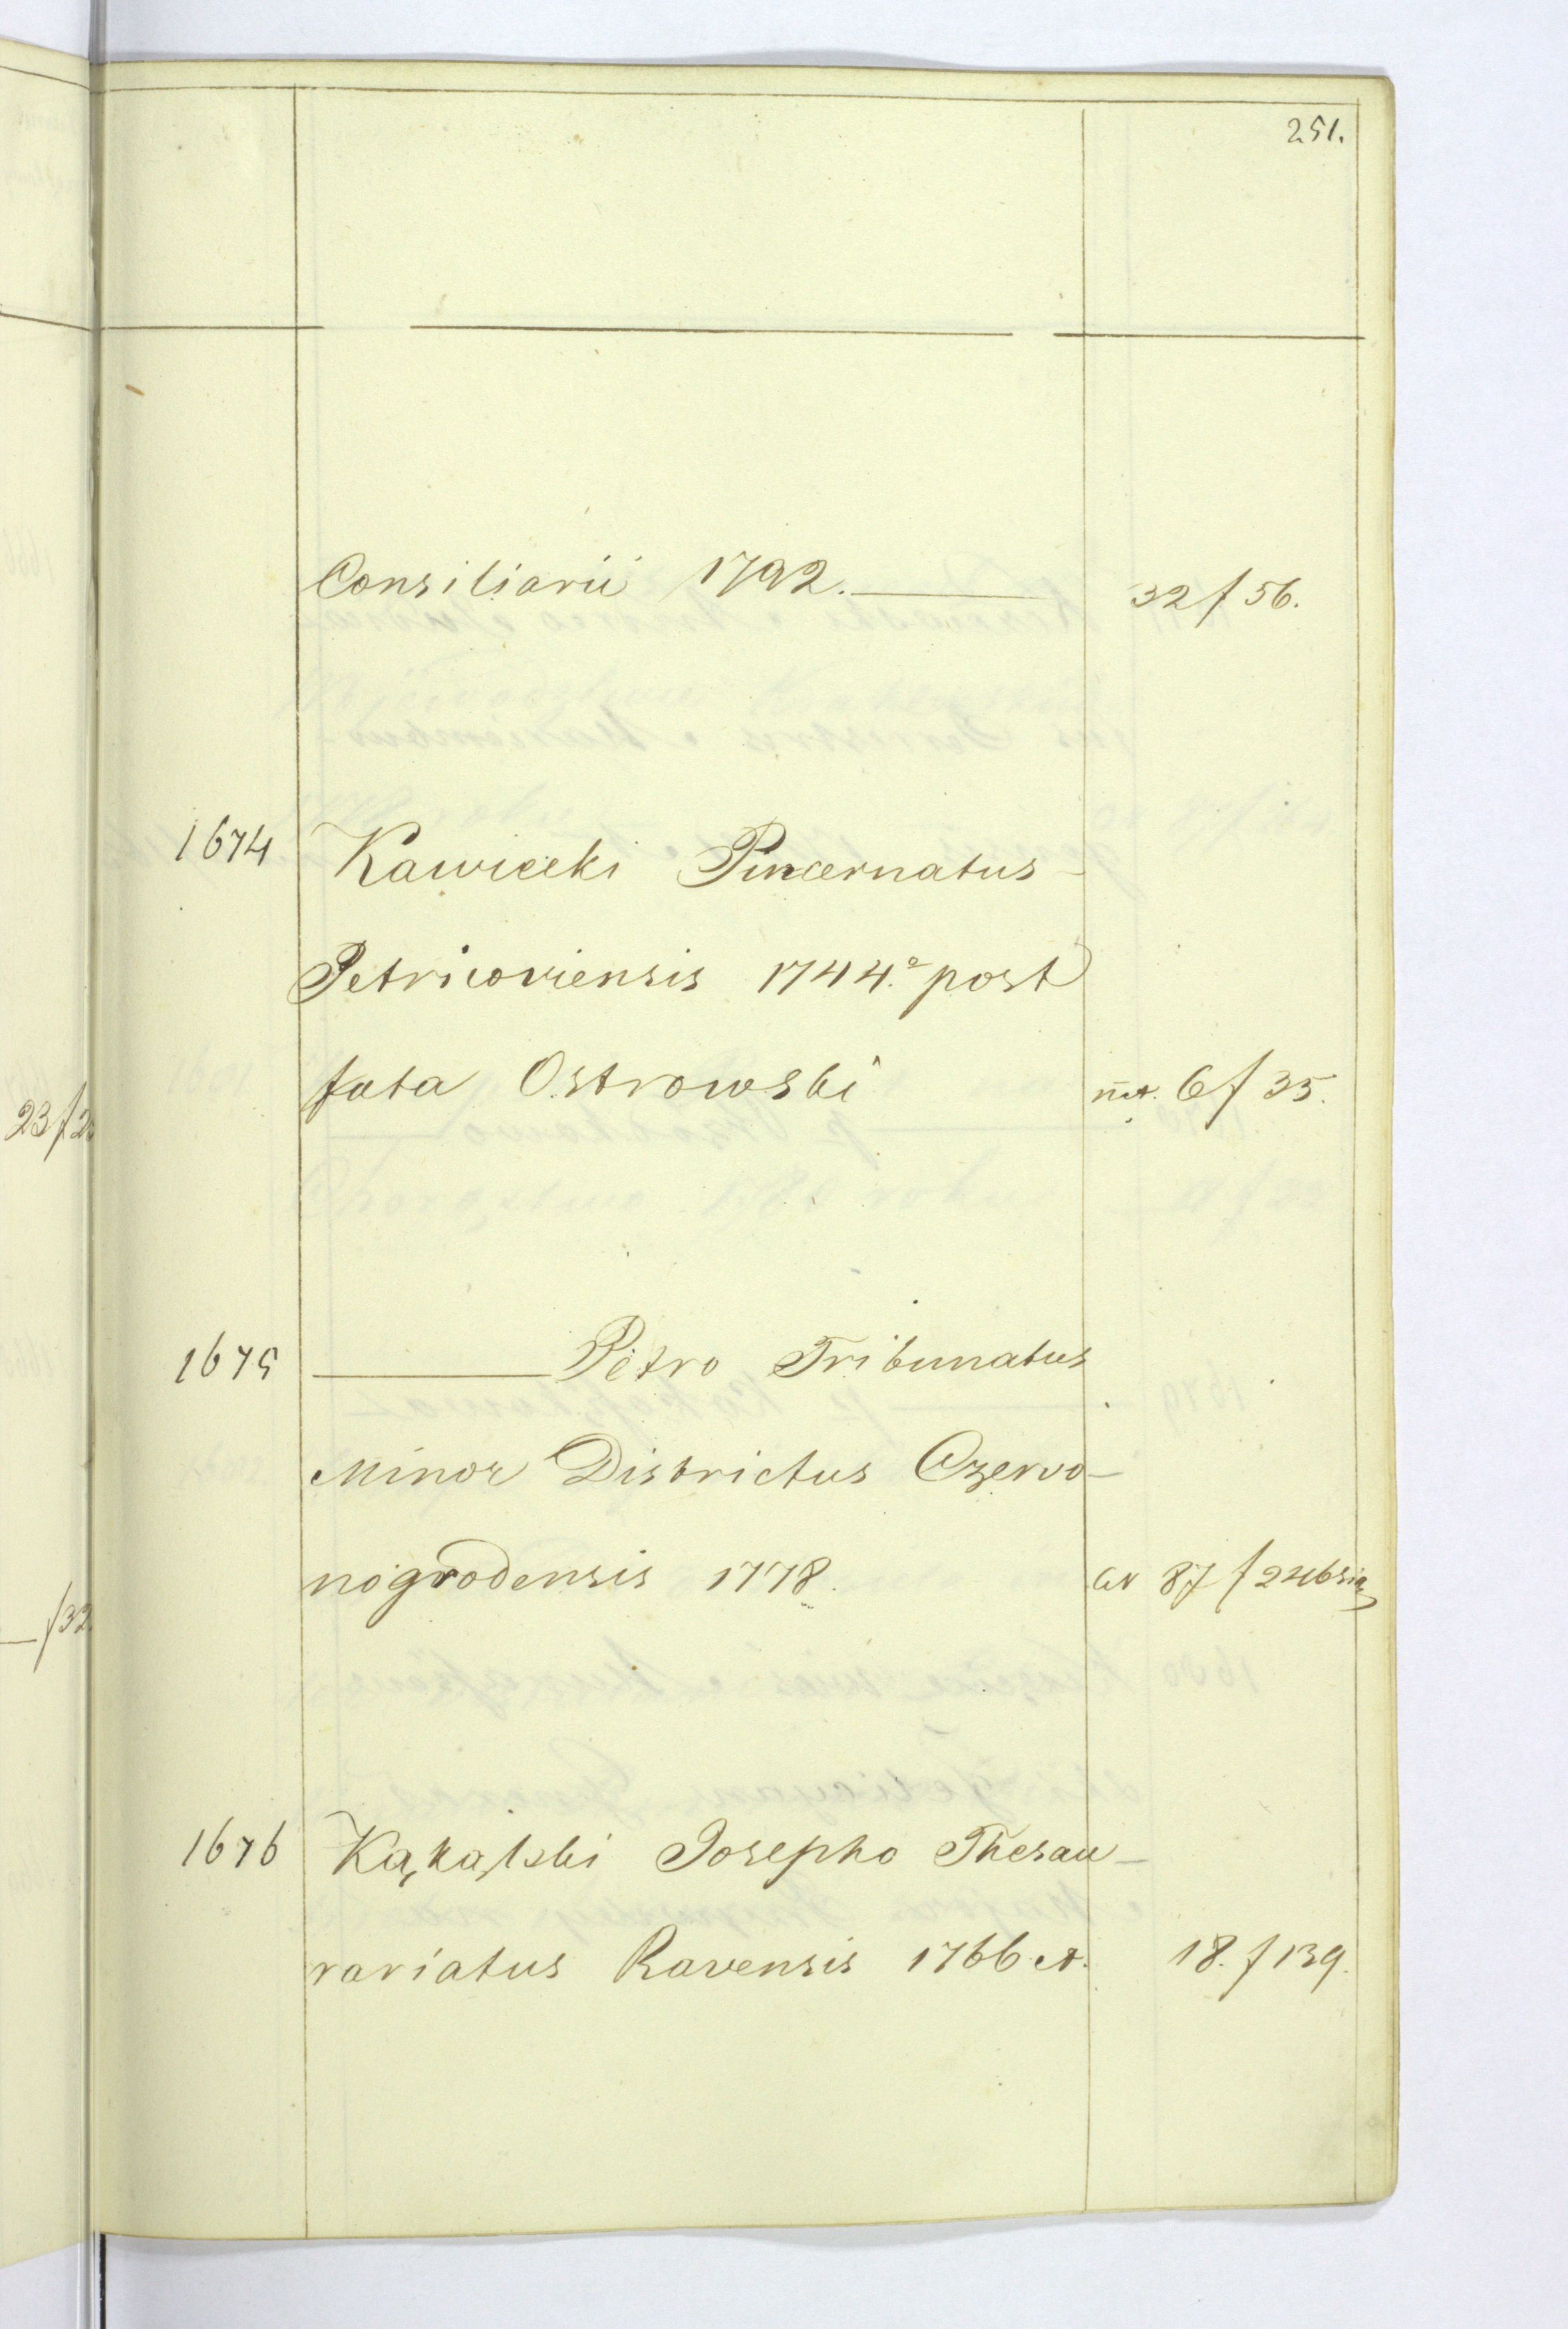 251.
Consiliarii 1792. 32 f 56.
1674 Kawiecki Pincernatus
Petricoviensis 1744.º post
fata Ostrowski 6 f 35.
1675 Petro Tribunatus
Minor Districtus Czerwo-
nogrodensis 1778. 87 f
1676 Kąkąlski Josepho Thesau-
rariatus Ravensis 1766 18. f 139.
23/2
/32